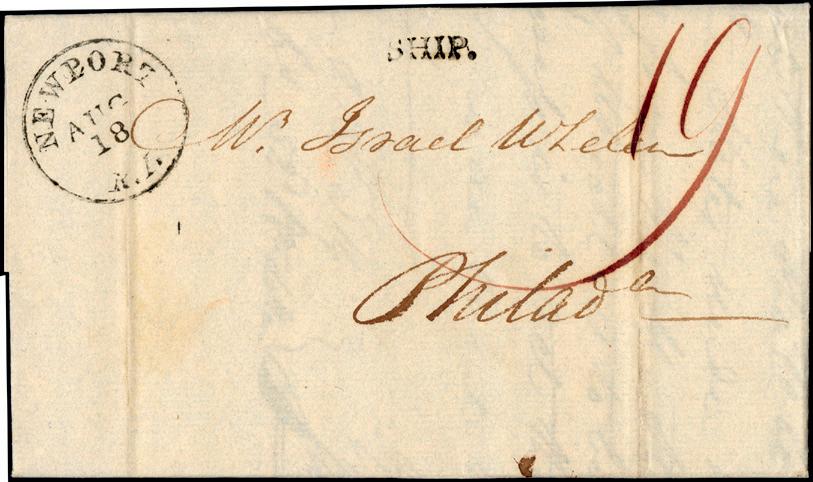 SHIP.
19
NEWPORT
AUG
18
R.I.
Mr. Israel Whelen
Philada